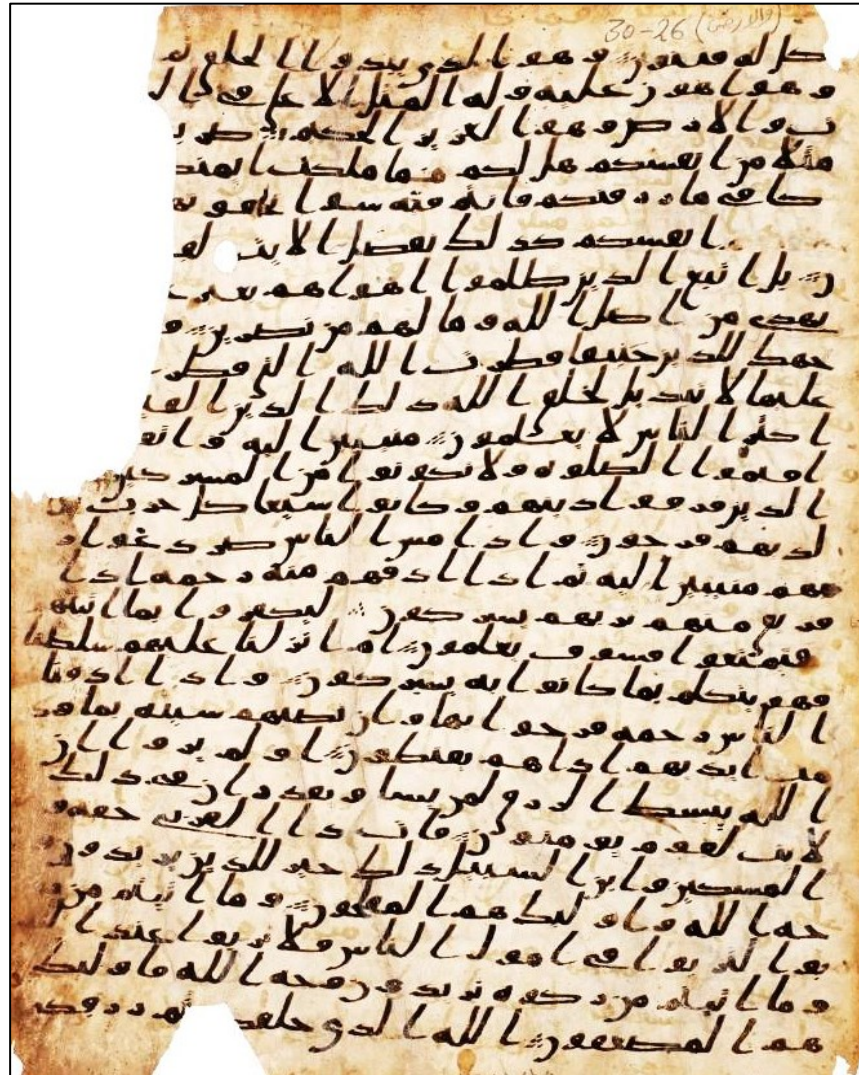 30-26 (والارض)
كل له قنتون وهو الذى يبدوا الخلق
وهو اهون عليه وله المثل الاعلى فى ا
ت والارض وهو العزيز الحكيم ضر
مثلا من انفسكم هل لكم مما ملكت ايمنكم
كا فى ما رزقنكم فانتم فيه سوا
انفسكم كذلك نفصل الايت لقو
ن بل اتبع الذين ظلموا اهواهم بغير
يهدى من اضل الله وما لهم من نصرين و
جهك للدين حنيفا فطرت الله التى فطر
عليها لا تبديل لخلق الله ذلك الدين القيم
اكثر الناس لا يعلمون منيبين اليه واتقو
اقيموا الصلوه ولا تكونوا من المشركين
الذين فرقوا دينهم وكانوا شيعا كل حزب بما
لديهم فرحون واذا مس الناس ضر دعوا ر
بهم منيبين اليه ثم اذا اذقهم منه رحمه اذا
فريق منهم بربهم يشركون ليكفروا بما اتينهم
فتمتعوا فسوف تعلمون ام انزلنا عليهم سلطنا
فهو يتكلم بما كانوا به يشركون واذا اذقنا
الناس رحمه فرحوا بها وان تصبهم سيئه بما قد
مت ايديهم اذا هم يقنطون اولم يروا ان
الله يبسط الرزق لمن يشا ويقدر ان فى ذلك
لايت لقوم يومنون فات ذا القربى حقه و
المسكين وابن السبيل ذلك خير للذين يريدون و
جه الله واوليك هم المفلحون وما اتيتم من ر
بوا لتربوا فى امول الناس فلا يربوا عند ا
وما اتيتم من زكوه تريدون وجه الله فاوليك
هم المضعفون الله الذى خلقكم ثم رزقكم